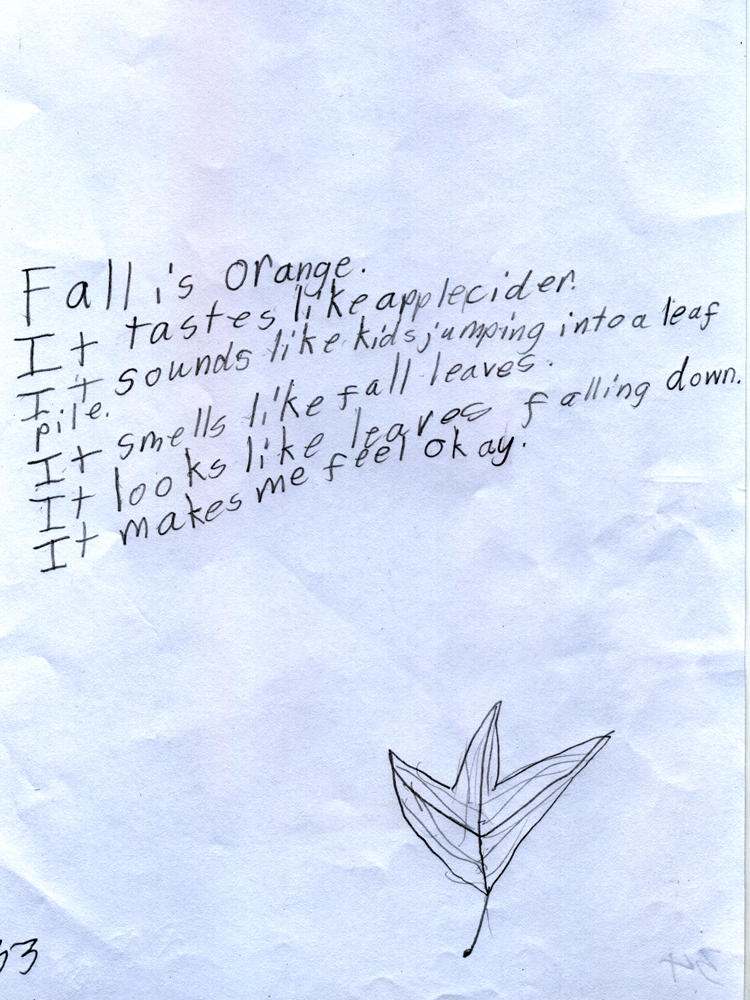 Fall is orange.
It tastes like applecider.
It sounds like kids jumping into a leaf
pile.
It smells like fall leaves.
It looks like leaves falling down.
It makes me feel okay.
53